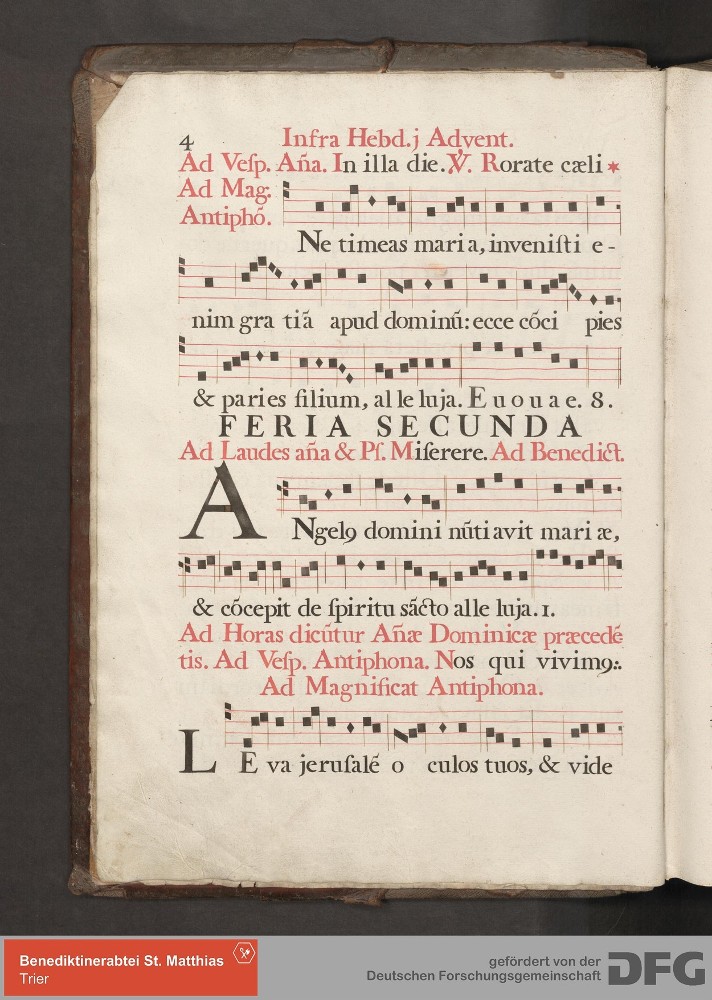 4 Infra Hebd.j Advent.
Ad Veſp. Aña. In illa die. ℣. Rorate cæli *
Ad Mag.
Antiphõ.
Ne timeas maria, inveniſti e-
nim gratiã apud dominũ: ecce cõcipies
& paries filium, alleluja. E u o u a e. 8.
FERIA SECUNDA
Ad Laudes aña & Pſ. Miſerere. Ad Benedict.
ANgelꝰ domini nũtiavit mariæ,
& cõcepit de ſpiritu sãcto alleluja. 1.
Ad Horas dicũtur Añæ Dominicæ præcedẽ
tis. Ad Veſp. Antiphona. Nos qui vivimꝰ:.
Ad Magnificat Antiphona.
LEva jeruſalẽ oculos tuos, & vide
Benediktinerabtei St. Matthias
Trier
gefördert von der
Deutschen Forschungsgemeinschaft
DFG